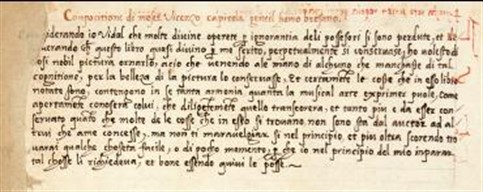 Compositione di meser Vicenzo capirola gentil homo bresano.
Considerando io Vidal che molte divine operete p ignorantia deli possesori si sono perdute, et de
siderando che questo libro quasi divino p me scrito, perpetualmente si conservase, ho volesto di
cosi nobil pictura ornarlo, acio che venendo ale mano di alchuno che manchasse di tal
cognitione, per la belleza di la pictura lo conservasse, Et certamente le cosse che in esso libro
notate sono, contengono in se tanta armonia quanta la musical arte exprimer puole, come
apertamente conoscera colui, che diligentemente quello transcorera, et tanto piu e da esser con
servato quato che molte de le cosse che in esso si trovano non sono sta dal auctor ad al
trui che a me concesse, ma non ti maravelgiar si nel principio, et piu oltra scorendo tro
varai qualche choseta facile, o di pocho momento, p che io nel principio del mio inparar
tal chosse li richiedeva, et bone essendo quivi le posse.